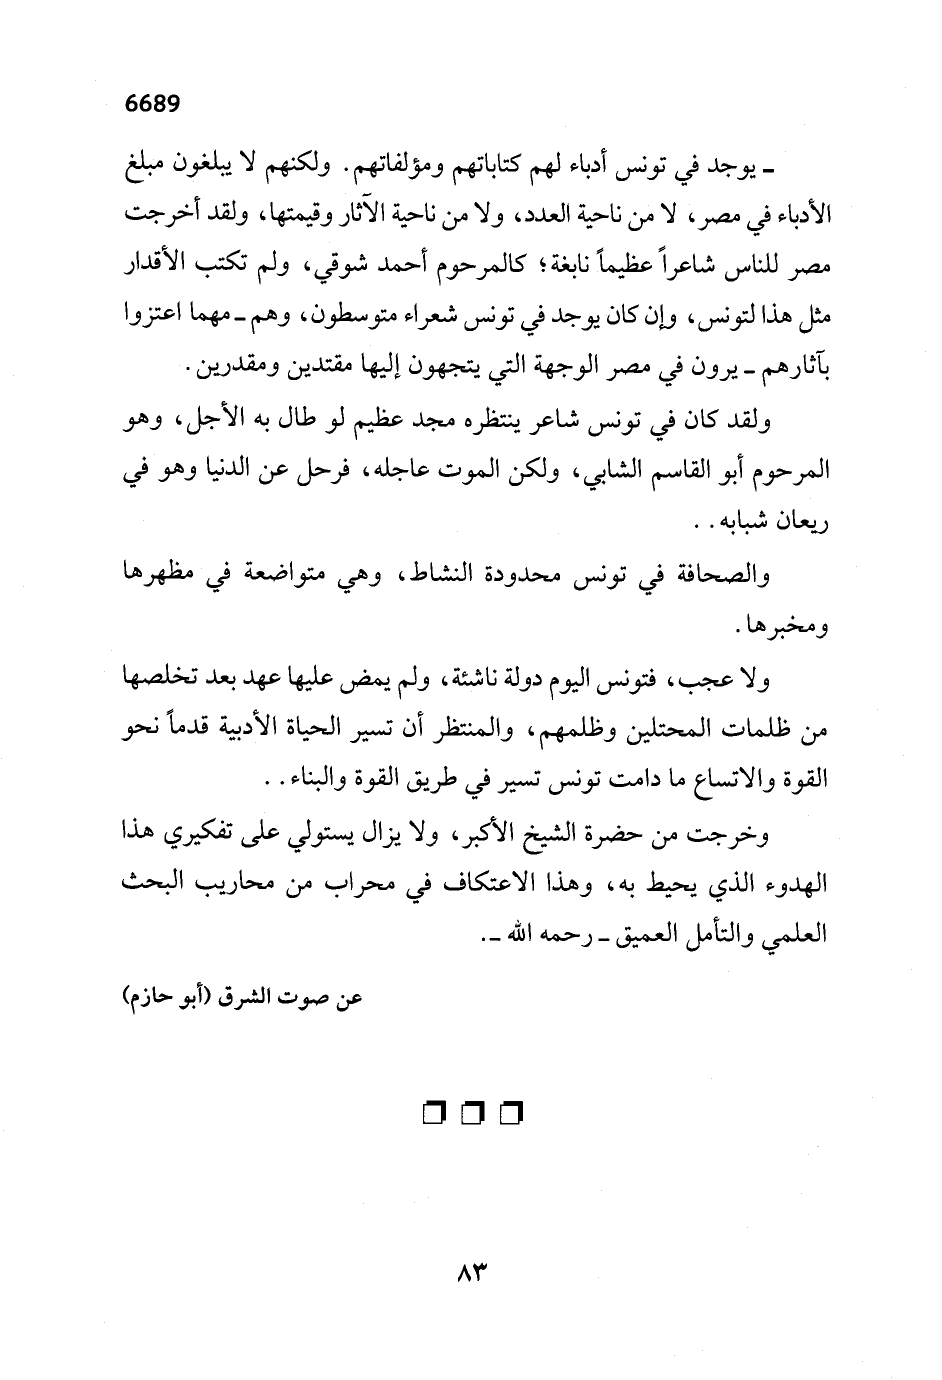 6689
ـ يوجد في تونس أدباء لهم كتاباتهم ومؤلفاتهم. ولكنهم لا يبلغون مبلغ
الأدباء في مصر، لا من ناحية العدد، ولا من ناحية الآثار وقيمتها، ولقد أخرجت
مصر للناس شاعراً عظيماً نابغة؛ كالمرحوم أحمد شوقي، ولم تكتب الأقدار
مثل هذا لتونس، وإن كان يوجد في تونس شعراء متوسطون، وهم ـ مهما اعتزوا
بآثارهم ـ يرون في مصر الوجهة التي يتجهون إليها مقتدين ومقدرين.
ولقد كان في تونس شاعر ينتظره مجد عظيم لو طال به الأجل، وهو
المرحوم أبو القاسم الشابي، ولكن الموت عاجله، فرحل عن الدنيا وهو في
ريعان شبابه..
والصحافة في تونس محدودة النشاط، وهي متواضعة في مظهرها
ومخبرها.
ولا عجب، فتونس اليوم دولة ناشئة، ولم يمض عليها عهد بعد تخلصها
من ظلمات المحتلين وظلمهم، والمنتظر أن تسير الحياة الأدبية قدماً نحو
القوة والاتساع ما دامت تونس تسير في طريق القوة والبناء..
وخرجت من حضرة الشيخ الأكبر، ولا يزال يستولي على تفكيري هذا
الهدوء الذي يحيط به، وهذا الاعتكاف في محراب من محاريب البحث
العلمي والتأمل العميق ـ رحمه الله ـ.
عن صوت الشرق (أبو حازم)
٨٣